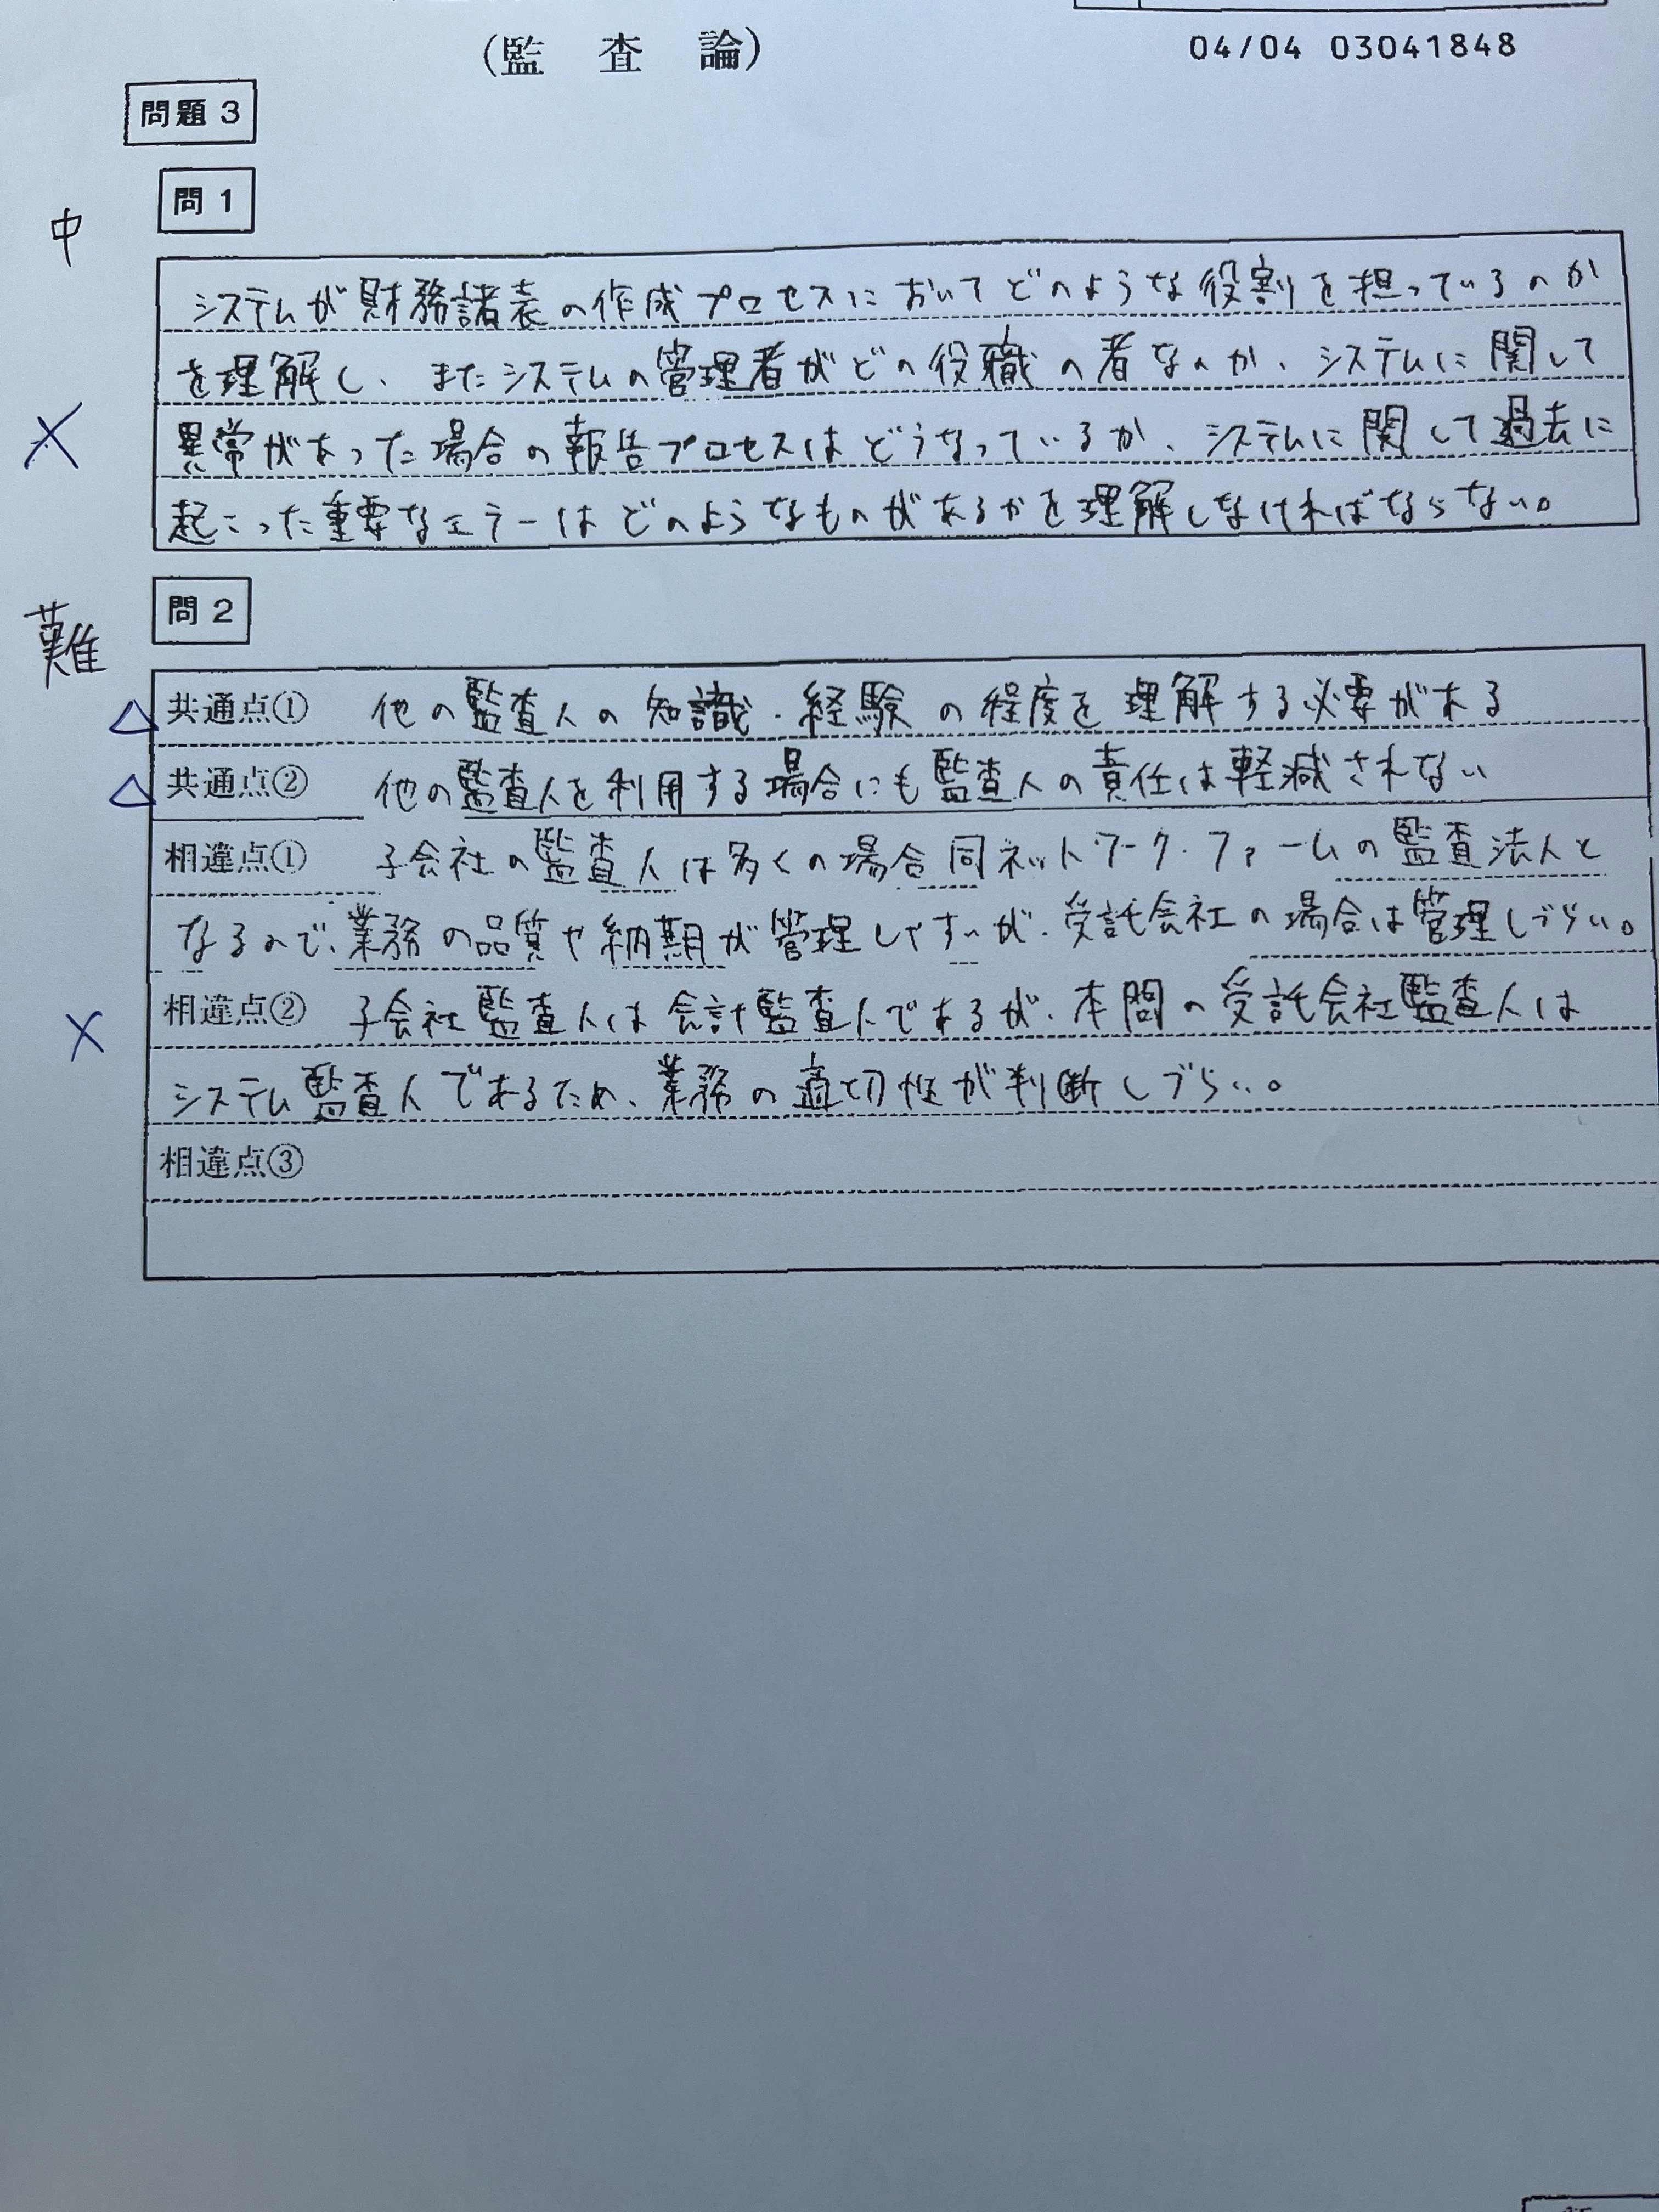 (監 査 論)
04/04 03041848
問題 3
問 1
中
システムが財務諸表の作成プロセスにおいてどのような役割を担っているのか
を理解し、またシステムの管理者がどの役職の者なのか、システムに関して
異常があった場合の報告プロセスはどうなっているか、システムに関して過去に
起こった重要なエラーはどのようなものがあるかを理解しなければならない。
難
問 2
共通点① 他の監査人の知識・経験の程度を理解する必要がある
共通点② 他の監査人を利用する場合にも監査人の責任は軽減されない
相違点① 子会社の監査人は多くの場合同ネットワーク・ファームの監査法人と
なるので、業務の品質や納期が管理しやすいが、受託会社の場合は管理しづらい。
相違点② 子会社監査人は会計監査人であるが、本問の受託会社監査人は
システム監査人であるため、業務の適切性が判断しづらい。
相違点③